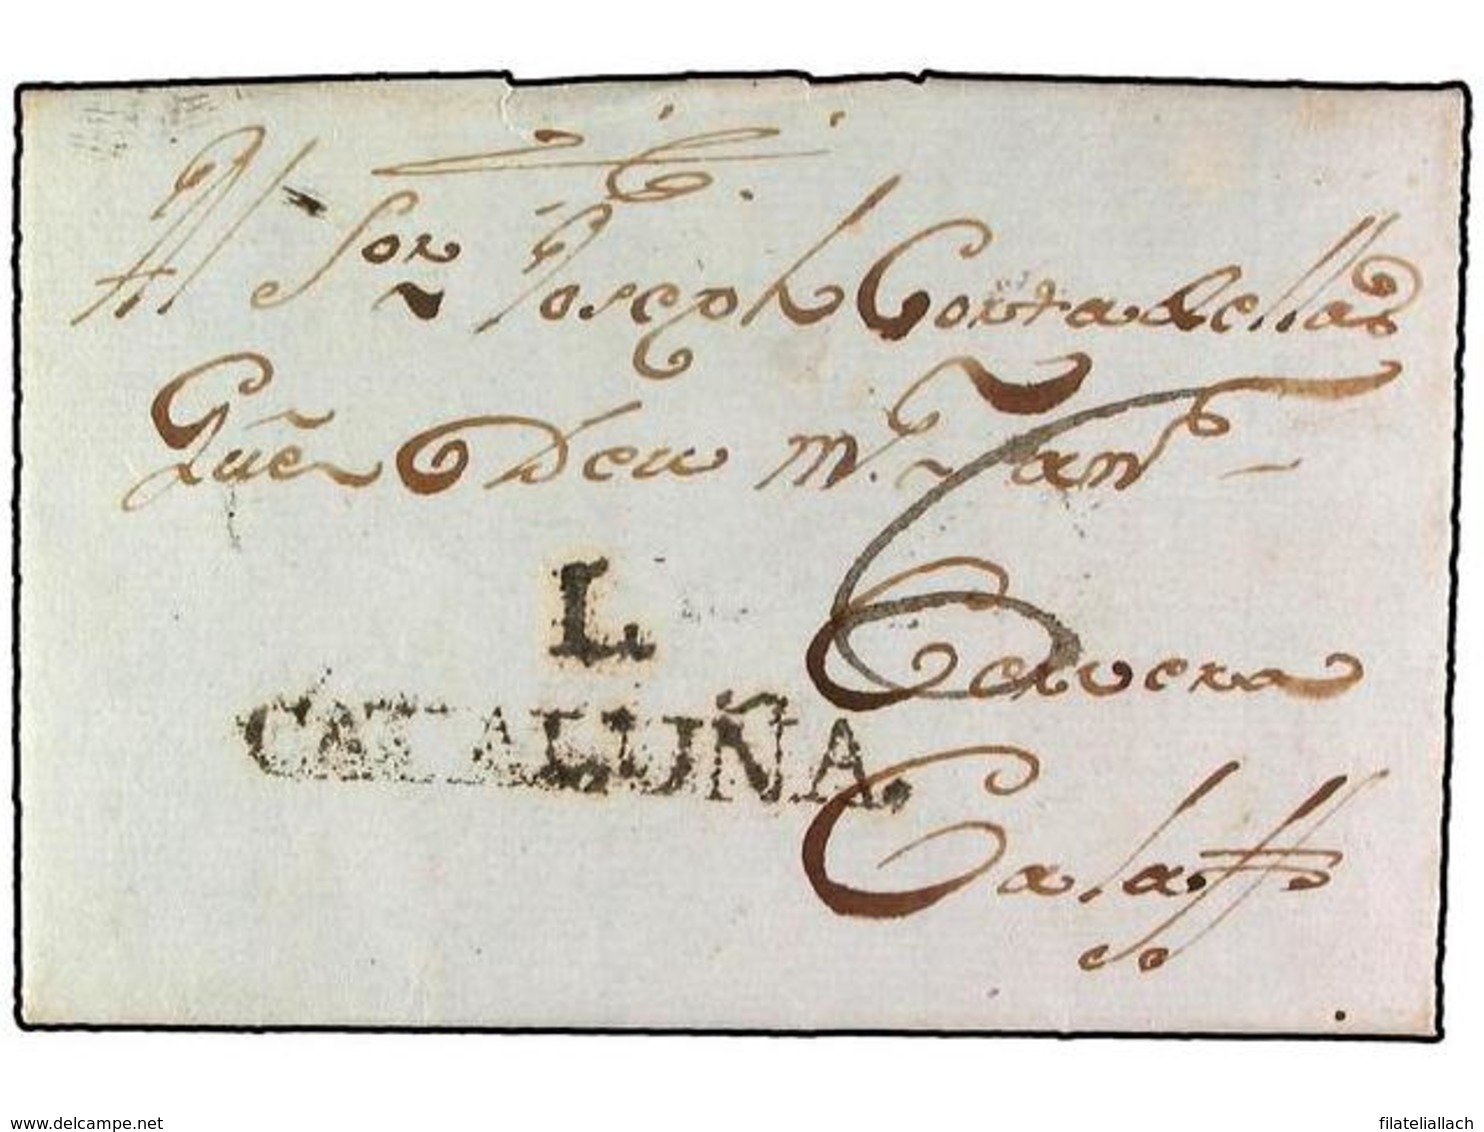 Al Sor Joseph Cortadellas
Que Deu m.
L.
CATALUÑA.
Cervera
Calaff
delcampe.net
filateliallach